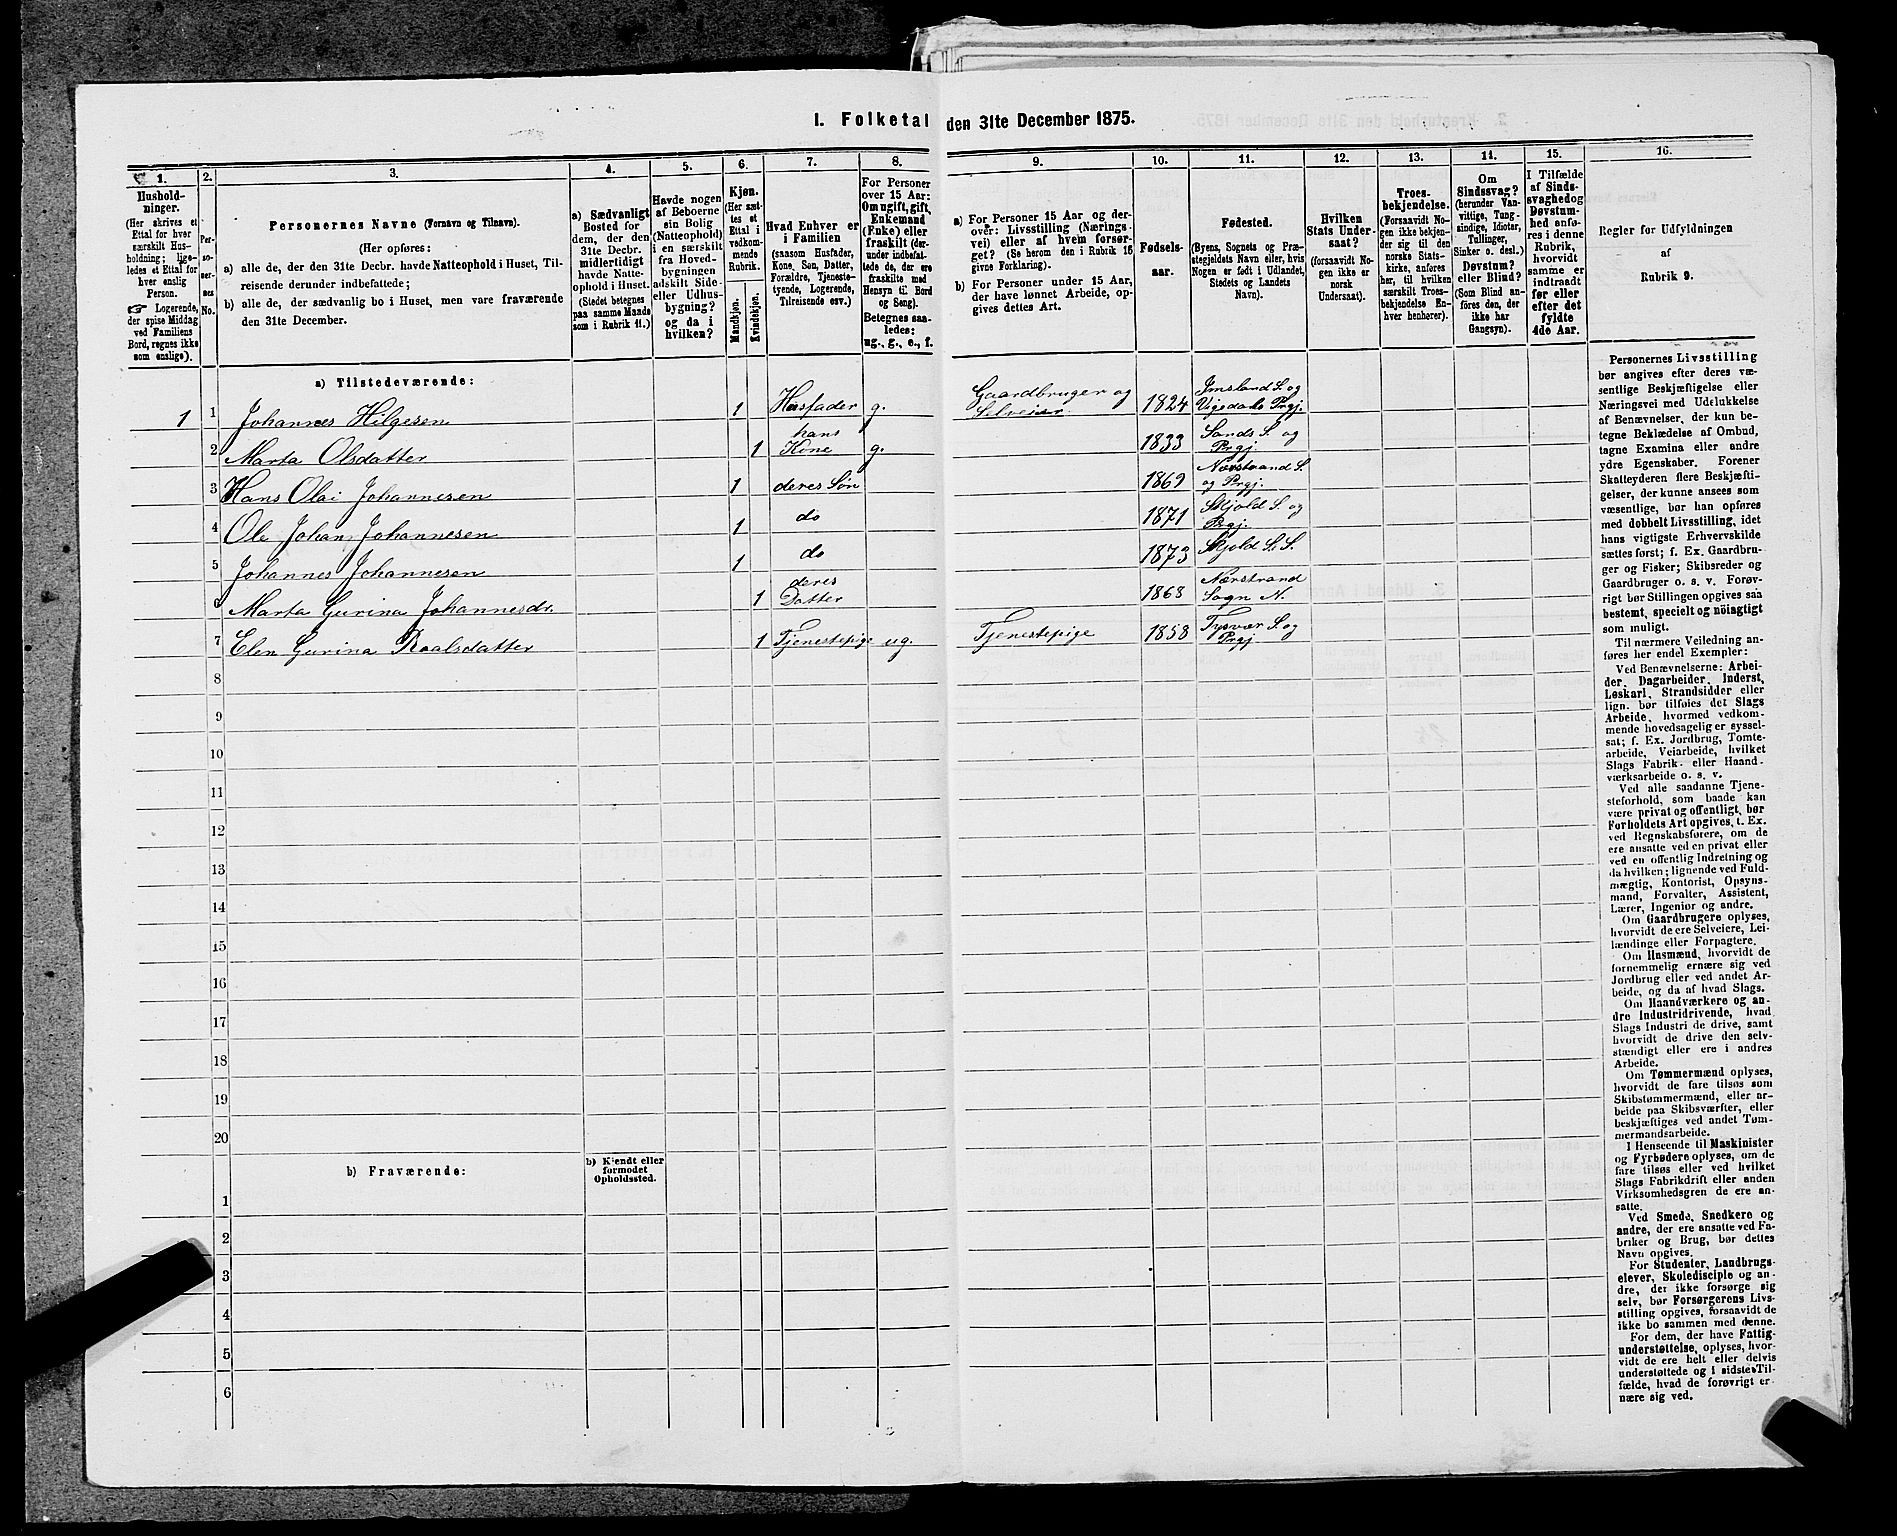 I. Folketal den 31te December 1875.
1.
Hushold-
ninger.
(Her skrives et
Ettal for hver
særskilt Hus-
holdning; lige-
ledes et Ettal for
hver enslig
Person.
☞ Logerende,
der spise Middag
ved Familiens
Bord, regnes ikke
som enslige).
2.
Per-
soner-
nes
No.
3.
Personernes Navne (Fornavn og Tilnavn).
(Her opføres:
a) alle de, der den 31te Decbr. havde Natteophold i Huset, Til-
reisende derunder indbefattede;
b) alle de, der sædvanlig bo i Huset, men vare fraværende
den 31te December.
4.
a) Sædvanligt
Bosted for
dem, der den
31te Decbr.
midlertidigt
havde Natte-
ophold i Huset.
(Stedet betegnes
paa samme Maade
som i Rubrik 11.)
5.
Havde nogen
af Beboerne
sin Bolig
(Natteophold)
i en særskilt
fra Hoved-
bygningen
adskilt Side-
eller Udhus-
bygning?
og da i
hvilken?
6.
Kjøn.
(Her sæt-
tes et
Ettal i
vedkom-
mende
Rubrik.
Mandkjøn.
Kvindekjøn.
7.
Hvad Enhver er
i Familien
(saasom Husfader,
Kone, Søn, Datter,
Forældre, Tjeneste-
tyende, Logerende,
Tilreisende osv.)
8.
For Personer
over 15 Aar:
Om ugift, gift,
Enkemand
(Enke) eller
fraskilt (der-
under indbefat-
tede de, der ere
fraskilte med
Hensyn til Bord
og Seng).
Betegnes saa-
ledes:
ug., g., e., f.
9.
a) For Personer 15 Aar og der-
over: Livsstilling (Nærings-
vei) eller af hvem forsør-
get? (Se herom den i Rubrik 16
givne Forklaring).
b) For Personer under 15 Aar,
der have lønnet Arbeide, op-
gives dettes Art.
10.
Fødsels-
aar.
11.
Fødested.
(Byens, Sognets og Præ-
stegjeldets Navn eller, hvis
Nogen er født i Udlandet,
Stedets og Landets
Navn).
12.
Hvilken
Stats Under-
saat?
(forsaavidt No-
gen ikke er
norsk
Undersaat).
13.
Troes-
bekjendelse.
(Forsaavidt No-
gen ikke bekjen-
der sig til den
norske Stats-
kirke, anføres
her, til hvilken
særskilt Troes-
bekjendelse En-
hver henhører).
14.
Om
Sindssvag?
(herunder Van-
vittige, Tung-
sindige, Idioter,
Tullinger,
Sinker o. desl.).
Døvstum?
eller Blind?
(Som Blind an-
føres den, der
ikke har
Gangsyn).
15.
I Tilfælde
af Sinds-
svaghed og
Døvstum-
hed anfø-
res i denne
Rubrik,
hvorvidt
samme er
indtraadt
før eller
efter det
fyldte
4de Aar.
16.
Regler for Udfyldningen
af
Rubrik 9.
a) Tilstedeværende:
1 1 Johannes Hilgesen 1 Husfader g. Gaardbruger og Selveier 1824 Imsland S. og Vigedals Prgj.
2 Marta Olsdatter 1 hans Kone g. 1833 Sands S. og Prgj.
3 Hans Olai Johannesen 1 deres Søn 1869 Nærstrand S. og Prgj.
4 Ole Johan Johannesen 1 do 1871 Skjold S. og Prgj.
5 Johannes Johannesen 1 do 1873 Skjold S. S.
6 Marta Gurina Johannesdr. 1 deres Datter 1868 Nærstrand Sogn N.
7 Elen Gurina Roalsdatter 1 Tjenestepige ug. Tjenestepige 1858 Tysvær S. og Prgj
8
9
10
11
12
13
14
15
16
17
18
19
20
b) Fraværende:
b) Kjendt eller
formodet
Opholdssted.
1
2
3
4
5
6
Personernes Livsstilling
bør angives efter deres væ-
sentlige Beskjæftigelse eller
Næringsvei med Udelukkelse
af Benævnelser, der kun be-
tegne Beklædelse af Ombud,
tagne Examina eller andre
ydre Egenskaber. Forener
Skatteyderen flere Beskjæfti-
gelser, der kunne ansees som
væsentlige, bør han opføres
med dobbelt Livsstilling, idet
hans vigtigste Erhvervskilde
sættes først; f. Ex. Gaardbru-
ger og Fisker; Skibsreder og
Gaardbruger o. s. v. Forøv-
rigt bør Stillingen opgives saa
bestemt, specielt og nöiagtigt
som muligt.
Til nærmere Veiledning an-
føres her endel Exempler:
Ved Benævnelserne: Arbei-
der, Dagarbeider, Inderst,
Løskarl, Strandsidder eller
lign. bør tilføies det Slags
Arbeide, hvormed vedkom-
mende hovedsagelig er syssel-
sat; f. Ex. Jordbrug, Tomte-
arbeide, Veiarbeide, hvilket
Slags Fabrik- eller Haand-
værksarbeide o. s. v.
Ved alle saadanne Tjene-
steforhold, som baade kan
være privat og offentligt, bør
Forholdets Art opgives, t. Ex.
ved Regnskabsførere, om de
ere ansatte ved en privat eller
ved en offentlig Indretning og
da hvilken; lignende ved Fuld-
mægtig, Kontorist, Opsyns-
mand, Forvalter, Assistent,
Lærer, Ingeniør og andre.
Om Gaardbrugere oplyses,
hvorvidt de ere Selveiere, Lei-
lændinge eller Forpagtere.
Om Husmænd, hvorvidt de
fornemmelig ernære sig ved
Jordbrug eller ved andet Ar-
beide, og da af hvad Slags.
Om Haandværkere og an-
dre Industridrivende, hvad
Slags Industri de drive, samt
hvorvidt de drive den selv-
stændigt eller ere i andres
Arbeide.
Om Tømmermænd oplyses,
hvorvidt de fare tilsøs som
Skibstømmermænd, eller ar-
beide paa Skibsværfter, eller
beskjæftiges ved andet Tøm-
mermandsarbeide.
I Henseende til Maskinister
og Fyrbødere oplyses, om de
fare tilsøs eller ved hvilket
Slags Fabrikdrift eller anden
Virksomhedsgren de ere an-
satte.
Ved Smede, Snedkere og
andre, der ere ansatte ved Fa-
briker og Brug, bør dettes
Navn opgives.
For Studenter, Landbrugs-
elever, Skoledisciple og an-
dre, der ikke forsørge sig
selv, bør Forsørgerens Livs-
stilling opgives, forsaavidt de
ikke bo sammen med denne.
For dem, der have Fattig-
understøttelse, oplyses, hvor-
vidt de ere helt eller delvis
understøttede og i sidste Til-
fælde, hvad de forøvrigt er-
nære sig ved.